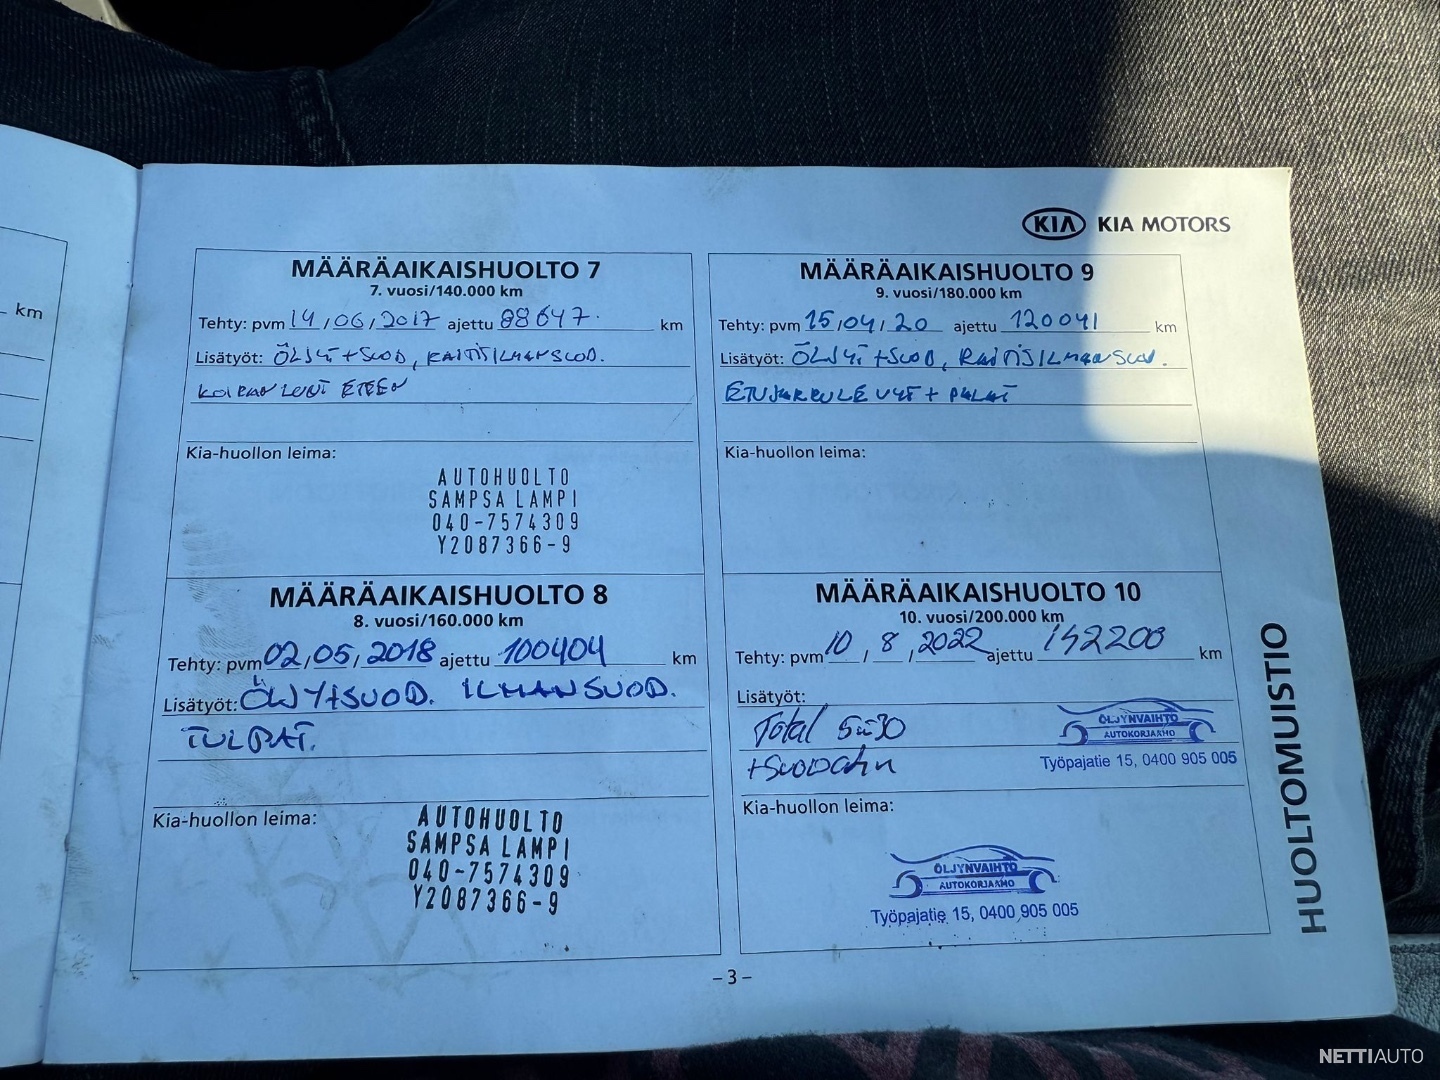 km
KIA KIA MOTORS
MÄÄRÄAIKAISHUOLTO 7
7. vuosi/140.000 km
Tehty: pvm 14/06/2017 ajettu 88647 km
Lisätyöt: ÖLJYT+SUOD, RAITISILMANSUOD.
KOIRANLUUT ETEEN
Kia-huollon leima:
AUTOHUOLTO
SAMPSA LAMPI
040-7574309
Y2087366-9
MÄÄRÄAIKAISHUOLTO 8
8. vuosi/160.000 km
Tehty: pvm 02,05,2018 ajettu 100404 km
Lisätyöt: ÖLJYT+SUOD. ILMANSUOD.
TULPAT.
Kia-huollon leima:
AUTOHUOLTO
SAMPSA LAMPI
040-7574309
Y2087366-9
MÄÄRÄAIKAISHUOLTO 9
9. vuosi/180.000 km
Tehty: pvm 15/04/20 ajettu 120041 km
Lisätyöt: ÖLJYT+SUOD, RAITISILMANSUOD.
ETUJARRULEVYT + PALAT
Kia-huollon leima:
MÄÄRÄAIKAISHUOLTO 10
10. vuosi/200.000 km
Tehty: pvm 10,8,2022 ajettu 142200 km
Lisätyöt:
Total 5w30
+suodatin
ÖLJYNVAIHTO
AUTOKORJAAMO
Työpajatie 15, 0400 905 005
Kia-huollon leima:
ÖLJYNVAIHTO
AUTOKORJAAMO
Työpajatie 15, 0400 905 005
HUOLTOMUISTIO
– 3 –
NETTIAUTO